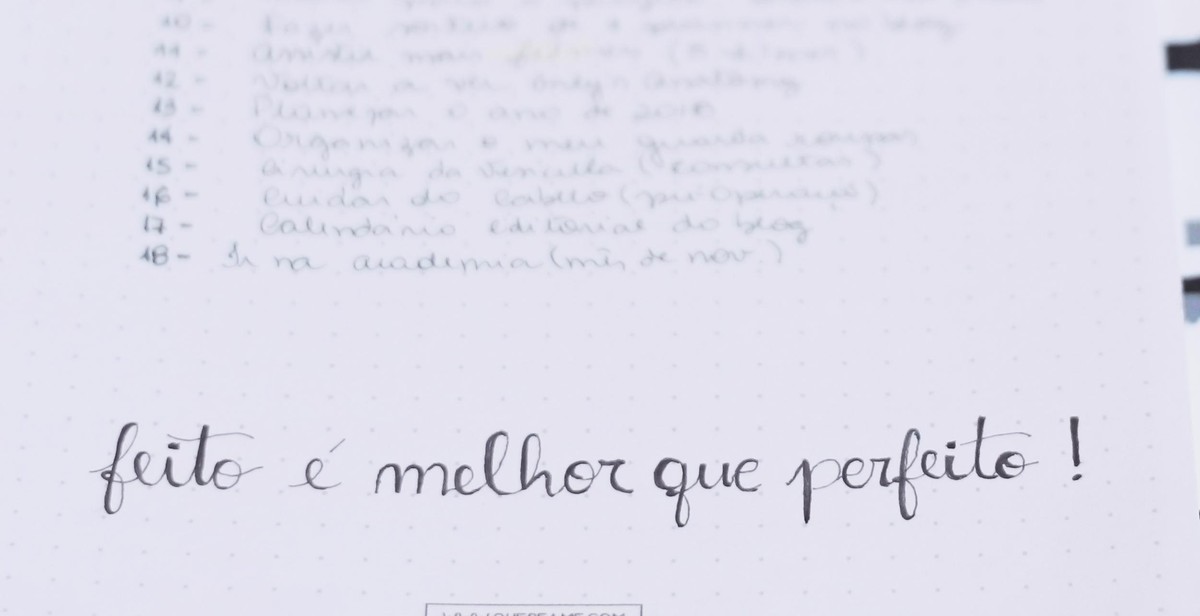 10 - Fazer sorteio de no blog
11 - Assistir mais filmes
12 - Voltar a ver Grey's Anatomy
13 - Planejar o ano de 2018
14 - Organizar o meu guarda roupas
15 - Cirurgia da Vesícula (consultas)
16 - Cuidar do cabelo (pré operação)
17 - Calendário editorial do blog
18 - Ir na academia (mês de nov.)
feito é melhor que perfeito !